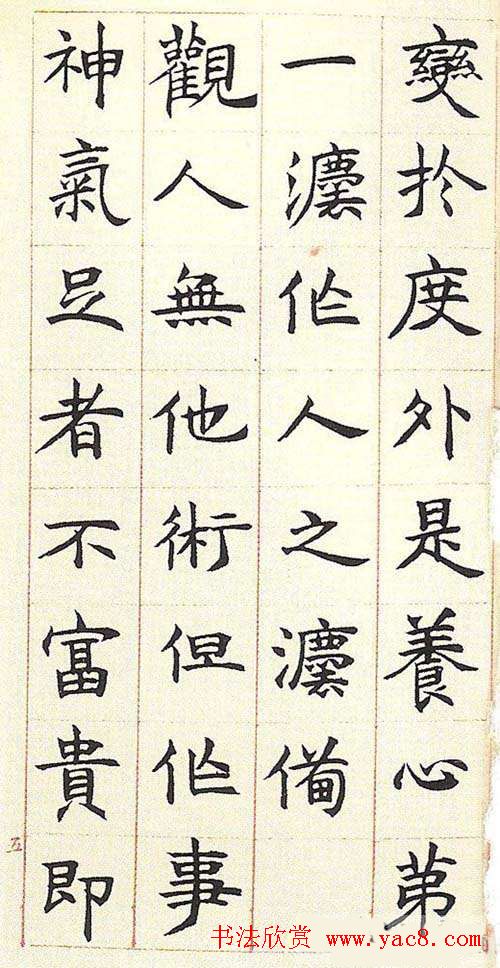 變扵度外是養心苐
一灋作人之灋備
觀人無他術但作事
神氣足者不富貴即
五
书法欣赏 www.yac8.com